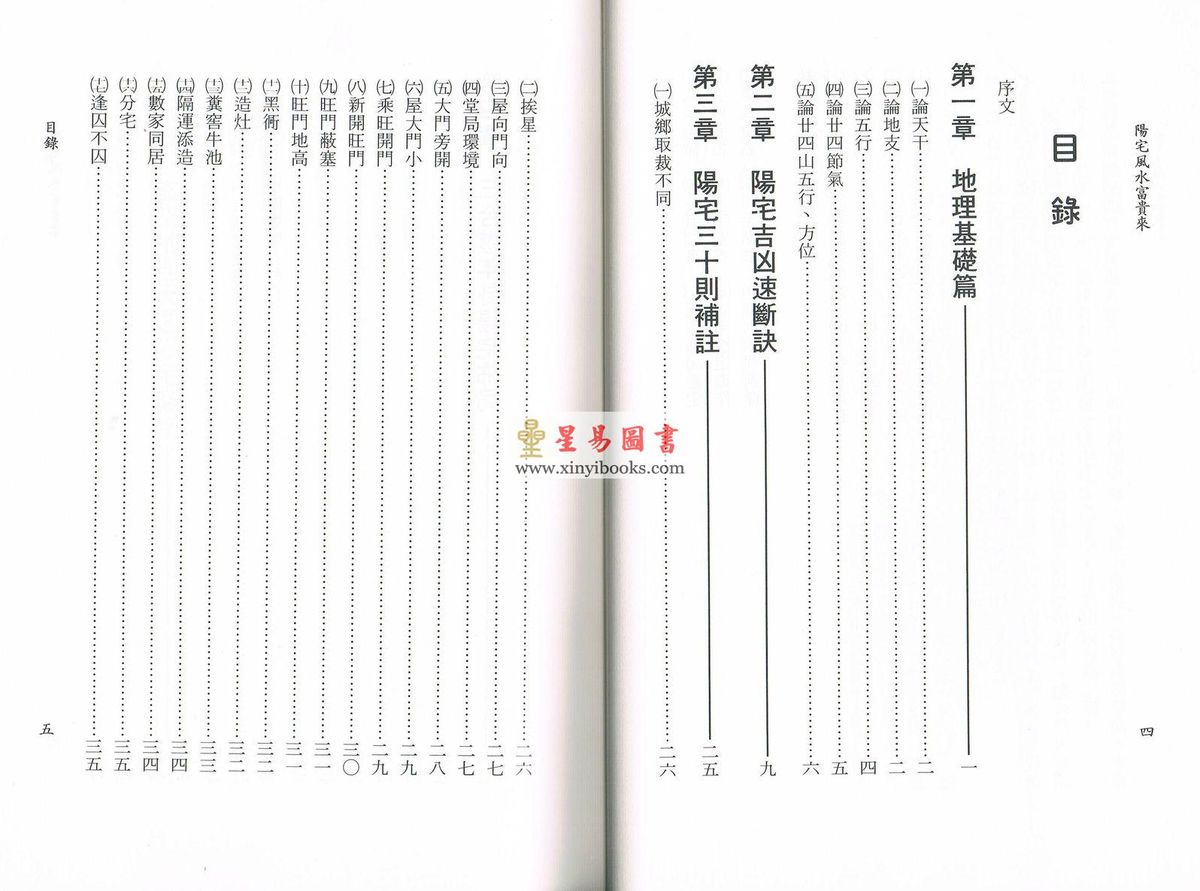 陽宅風水富貴來
目錄
序文
第一章 地理基礎篇 一
㈠論天干 二
㈡論地支 二
㈢論五行 四
㈣論廿四節氣 五
㈤論廿四山五行、方位 六
第二章 陽宅吉凶速斷訣 九
第三章 陽宅三十則補註 二五
㈠城鄉取裁不同 二六
四
㈡挨星 二六
㈢屋向門向 二七
㈣堂局環境 二七
㈤大門旁開 二八
㈥屋大門小 二九
㈦乘旺開門 二九
㈧新開旺門 三〇
㈨旺門蔽塞 三一
㈩旺門地高 三一
(十一)黑衕 三二
(十二)造灶 三二
(十三)糞窖牛池 三三
(十四)隔運添造 三四
(十五)數家同居 三四
(十六)分宅 三五
(十七)逢囚不囚 三五
目錄
五
星易圖書
www.xinyibooks.com